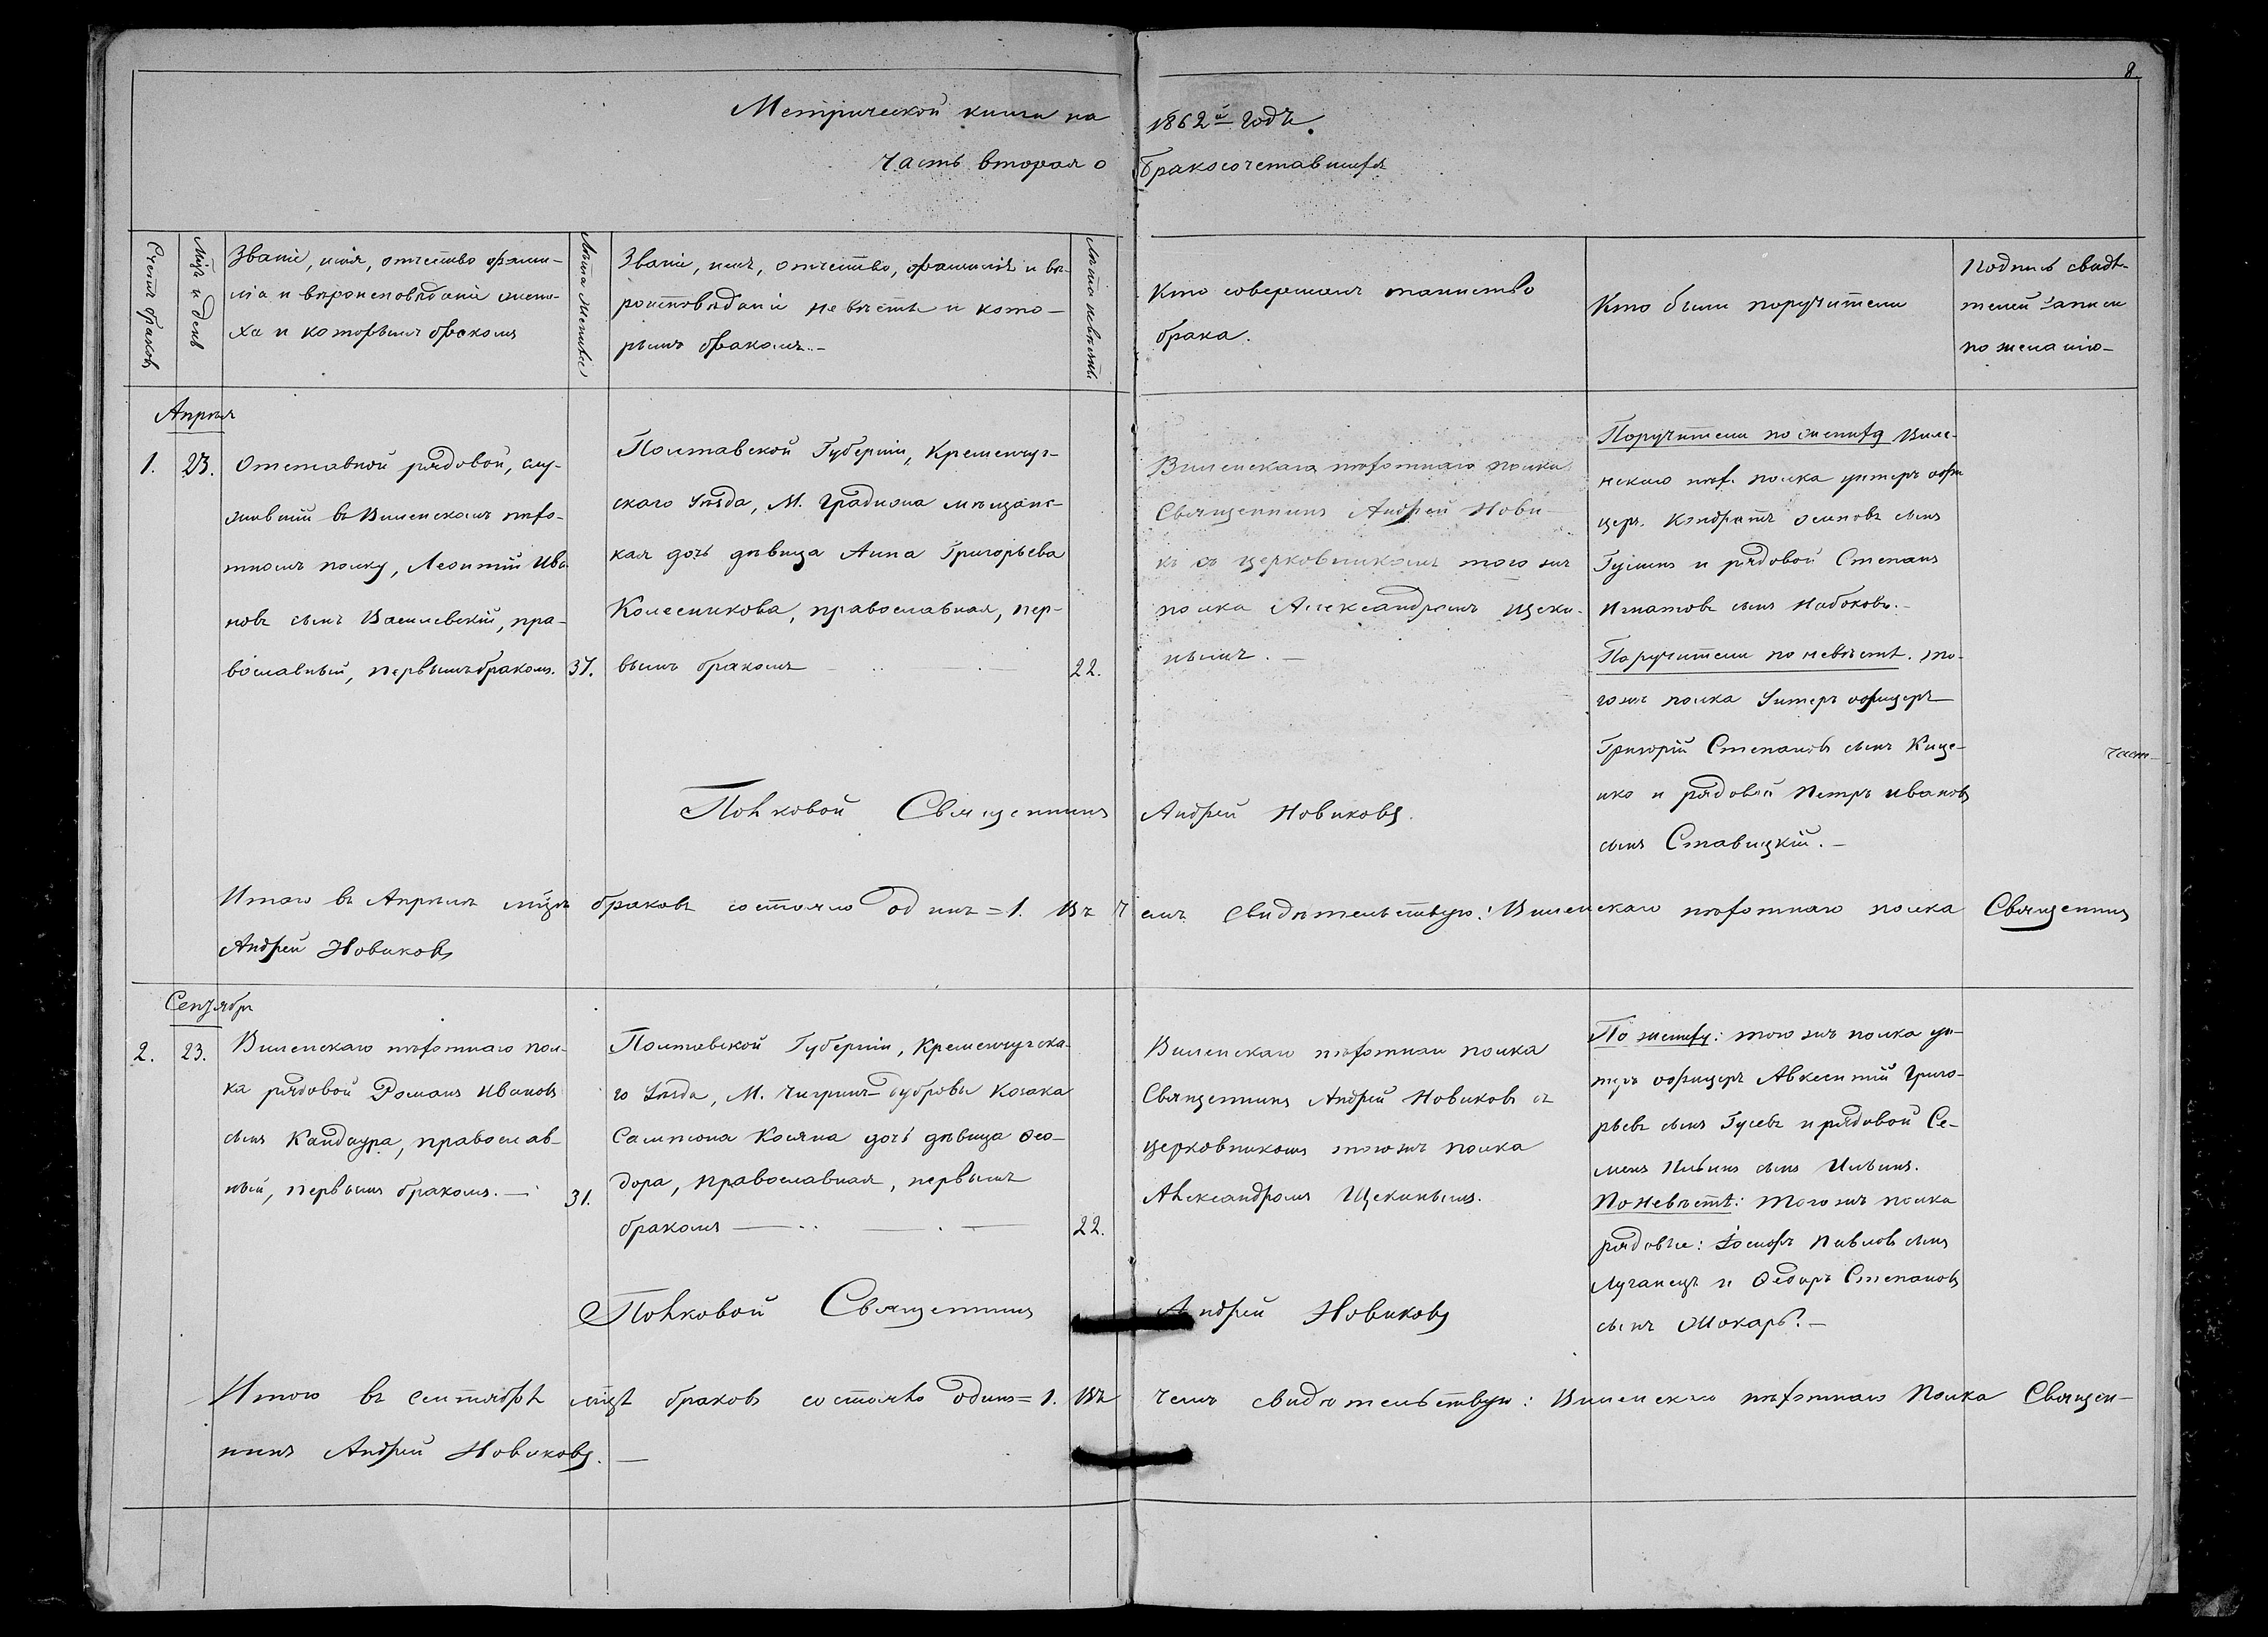 8.
Метрической книги на 1862й годъ.
Часть вторая о бракосочетавшихся
Счетъ браковъ
Мцъ и день
Званіе, имя, отчество фами-
лія и вѣроисповѣданіе жени-
ха и которымъ бракомъ
Лѣта жениха
Званіе, имя, отчество, фамилія и вѣ-
роисповѣданіе невѣсты и кото-
рымъ бракомъ.-
Лѣта невѣсты
Кто совершалъ таинство
брака.
Кто были поручители
Подпись свидѣ-
телей записи
по желанію-
Апрѣля
1. 23.
Отставной рядовой, слу-
жившій въ Виленскомъ пѣхо-
тномъ полку, Леонтій Ива-
новъ сынъ Василевскій, пра-
вославный, первымъ бракомъ. 37.
Полтавской Губерніи, Кременчуг-
скаго Уѣзда, М. Градизка мѣщанс-
кая дочь дѣвица Анна Григорьева
Колесникова, православная, пер-
вымъ бракомъ 22.
Виленскаго пѣхотнаго полка
Священникъ Андрей Нови-
къ съ церковникомъ того жъ
полка Александромъ Щеки-
нымъ.-
Поручители по женихѣ Виле-
нскаго пѣх. полка унтеръ офи
церъ Кондратъ Осиповъ сынъ
и рядовой Степанъ
Игнатовъ сынъ Набоковъ.-
Поручители по невѣстѣ. то-
го жъ полка Унтеръ офицеръ
Григорій Степановъ сынъ Кице-
нко и рядовой Петръ Ивановъ
сынъ Ставицкій.-
част-
Полковой Священникъ Андрей Новиковъ.
Итого въ Апрѣлѣ мцѣ браковъ состояло одинъ=1. Въ чемъ свидѣтельствую: Виленскаго пѣхотнаго полка Священникъ
Андрей Новиковъ
Сентября
2. 23.
Виленскаго пѣхотнаго пол-
ка рядовой Романъ Ивановъ
сынъ Кандаура, православ-
ный, первымъ бракомъ.- 31.
Полтавской Губерніи, Кременчугска-
го Уѣзда, М. Чигринъ-дубровы Козака
Сампсона Косяка дочь дѣвица Ѳео-
дора, православная, первымъ
бракомъ 22.
Виленскаго пѣхотнаго полка
Священникъ Андрей Новиковъ съ
церковникомъ того жъ полка
Александромъ Щекинымъ.
По женихѣ: того жъ полка ун-
теръ офицеръ Авксентій Григо-
рьевъ сынъ Гусевъ и рядовой Се-
менъ Ильинъ сынъ Ильинъ.
По невѣстѣ: Того жъ полка
рядовые: Іосифъ Павловъ сынъ
Луганецъ и Ѳедоръ Степановъ
сынъ
Полковой Священникъ Андрей Новиковъ
Итого въ сентябрѣ мцѣ браковъ состояло одинъ=1. Въ чемъ свидѣтельствую: Виленскаго пѣхотнаго Полка Священ-
никъ Андрей Новиковъ.-